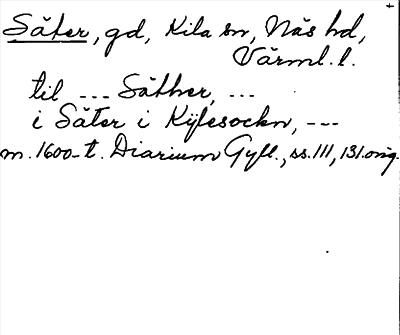 Säter, gd, Kila sn, Näs hd,
Värml. l.
til --- Säther, ---
i Säter i Kijlesockn, ---
m. 1600-t. Diarium Gyll., ss. 111, 131. orig.